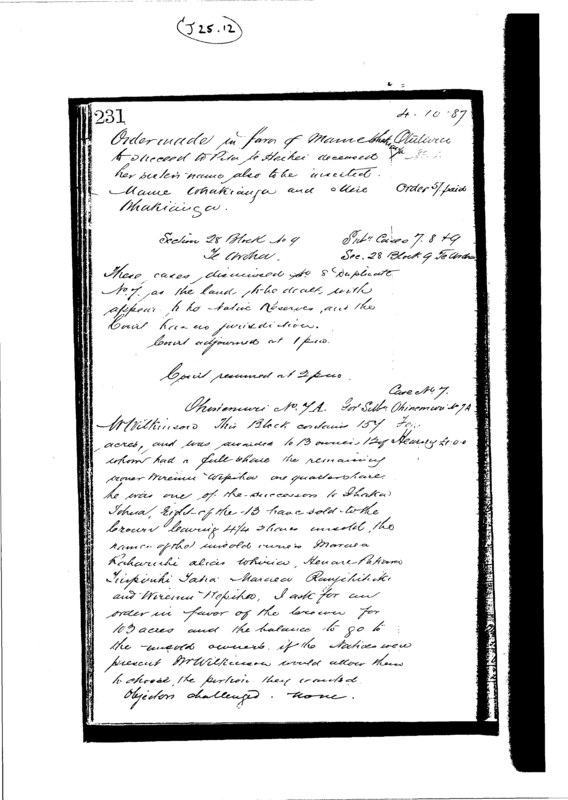 J 25.12
231
4-10-87
Order made in favor of Mame Whakianga
to succeed to Pita te Heihei deceased
her sisters name also to be inserted.
Mame Whakianga and Mere Order 5/ paid
Whakianga.
Section 28 Block No 9
Te Aroha.
Subn Cases 7. 8 & 9
Sec. 28 Block 9 Te Aroha
These cases dismissed No 8 Duplicate
No 7, as the land to be dealt with
appears to be Native Reserve, and the
Court has no jurisdiction.
Court adjourned at 1 p.m.
Court resumed at 2 p.m.
Case No 7.
Ohinemuri No. 7A. For Subn Ohinemuri No 7A
Mr Wilkinson This Block contains 157
acres, and was awarded to 13 owners 12 of Hearing £1.0.0
whom had a full share the remaining
owner Wiremu Wepiha one quarter share
he was one of the successors to
Eight of the 13 have sold to the
Crown leaving 4 1/4 shares unsold, the
names of the unsold owners Maraea
alias Wikiriwhi, Henare
Maraea
and Wiremu Wepiha, I ask for an
order in favor of the Crown for
103 acres and the balance to go to
the unsold owners, if the Natives were
present Mr Wilkinson would allow them
to choose the portion they wanted.
Objectors challenged. none.